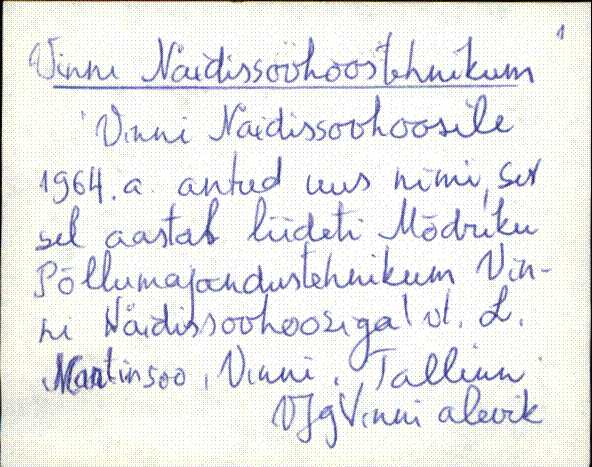 1
Vinni Näidissovhoostehnikum
Vinni Näidissovhoosile
1964. a. antud uus nimi, sest
sel aastal liideti Mõdriku
Põllumajandustehnikum Vin-
ni Näidissovhoosiga! vt. L.
Martinsoo, Vinni, Tallinn
VJg Vinni alevik